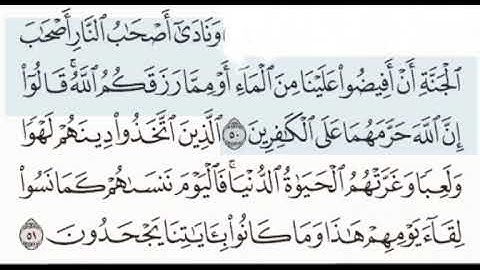 وَنَادَىٰٓ أَصْحَٰبُ ٱلنَّارِ أَصْحَٰبَ
ٱلْجَنَّةِ أَنْ أَفِيضُوا۟ عَلَيْنَا مِنَ ٱلْمَآءِ أَوْ مِمَّا رَزَقَكُمُ ٱللَّهُ ۚ قَالُوٓا۟
إِنَّ ٱللَّهَ حَرَّمَهُمَا عَلَى ٱلْكَٰفِرِينَ ٥٠ ٱلَّذِينَ ٱتَّخَذُوا۟ دِينَهُمْ لَهْوًا
وَلَعِبًا وَغَرَّتْهُمُ ٱلْحَيَوٰةُ ٱلدُّنْيَا ۚ فَٱلْيَوْمَ نَنسَىٰهُمْ كَمَا نَسُوا۟
لِقَآءَ يَوْمِهِمْ هَٰذَا وَمَا كَانُوا۟ بِـَٔايَٰتِنَا يَجْحَدُونَ ٥١